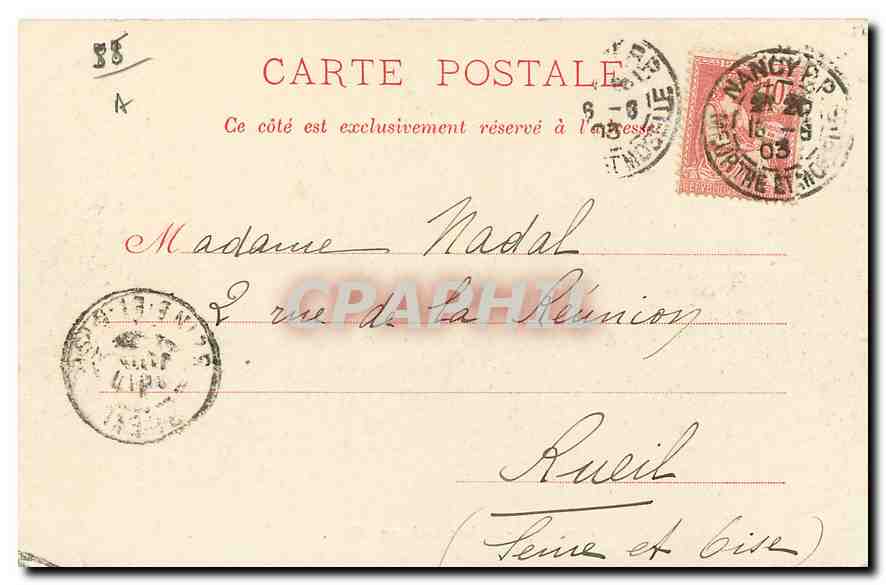 58
A
CARTE POSTALE
Ce côté est exclusivement réservé à l'adresse
NANCY R.P.
03
MEURTHE ET MOSELLE
Madame Nadal
CPAPHIL
2 rue de la Réunion
SEINE-ET-OISE
RUEIL
Rueil
(Seine et Oise)